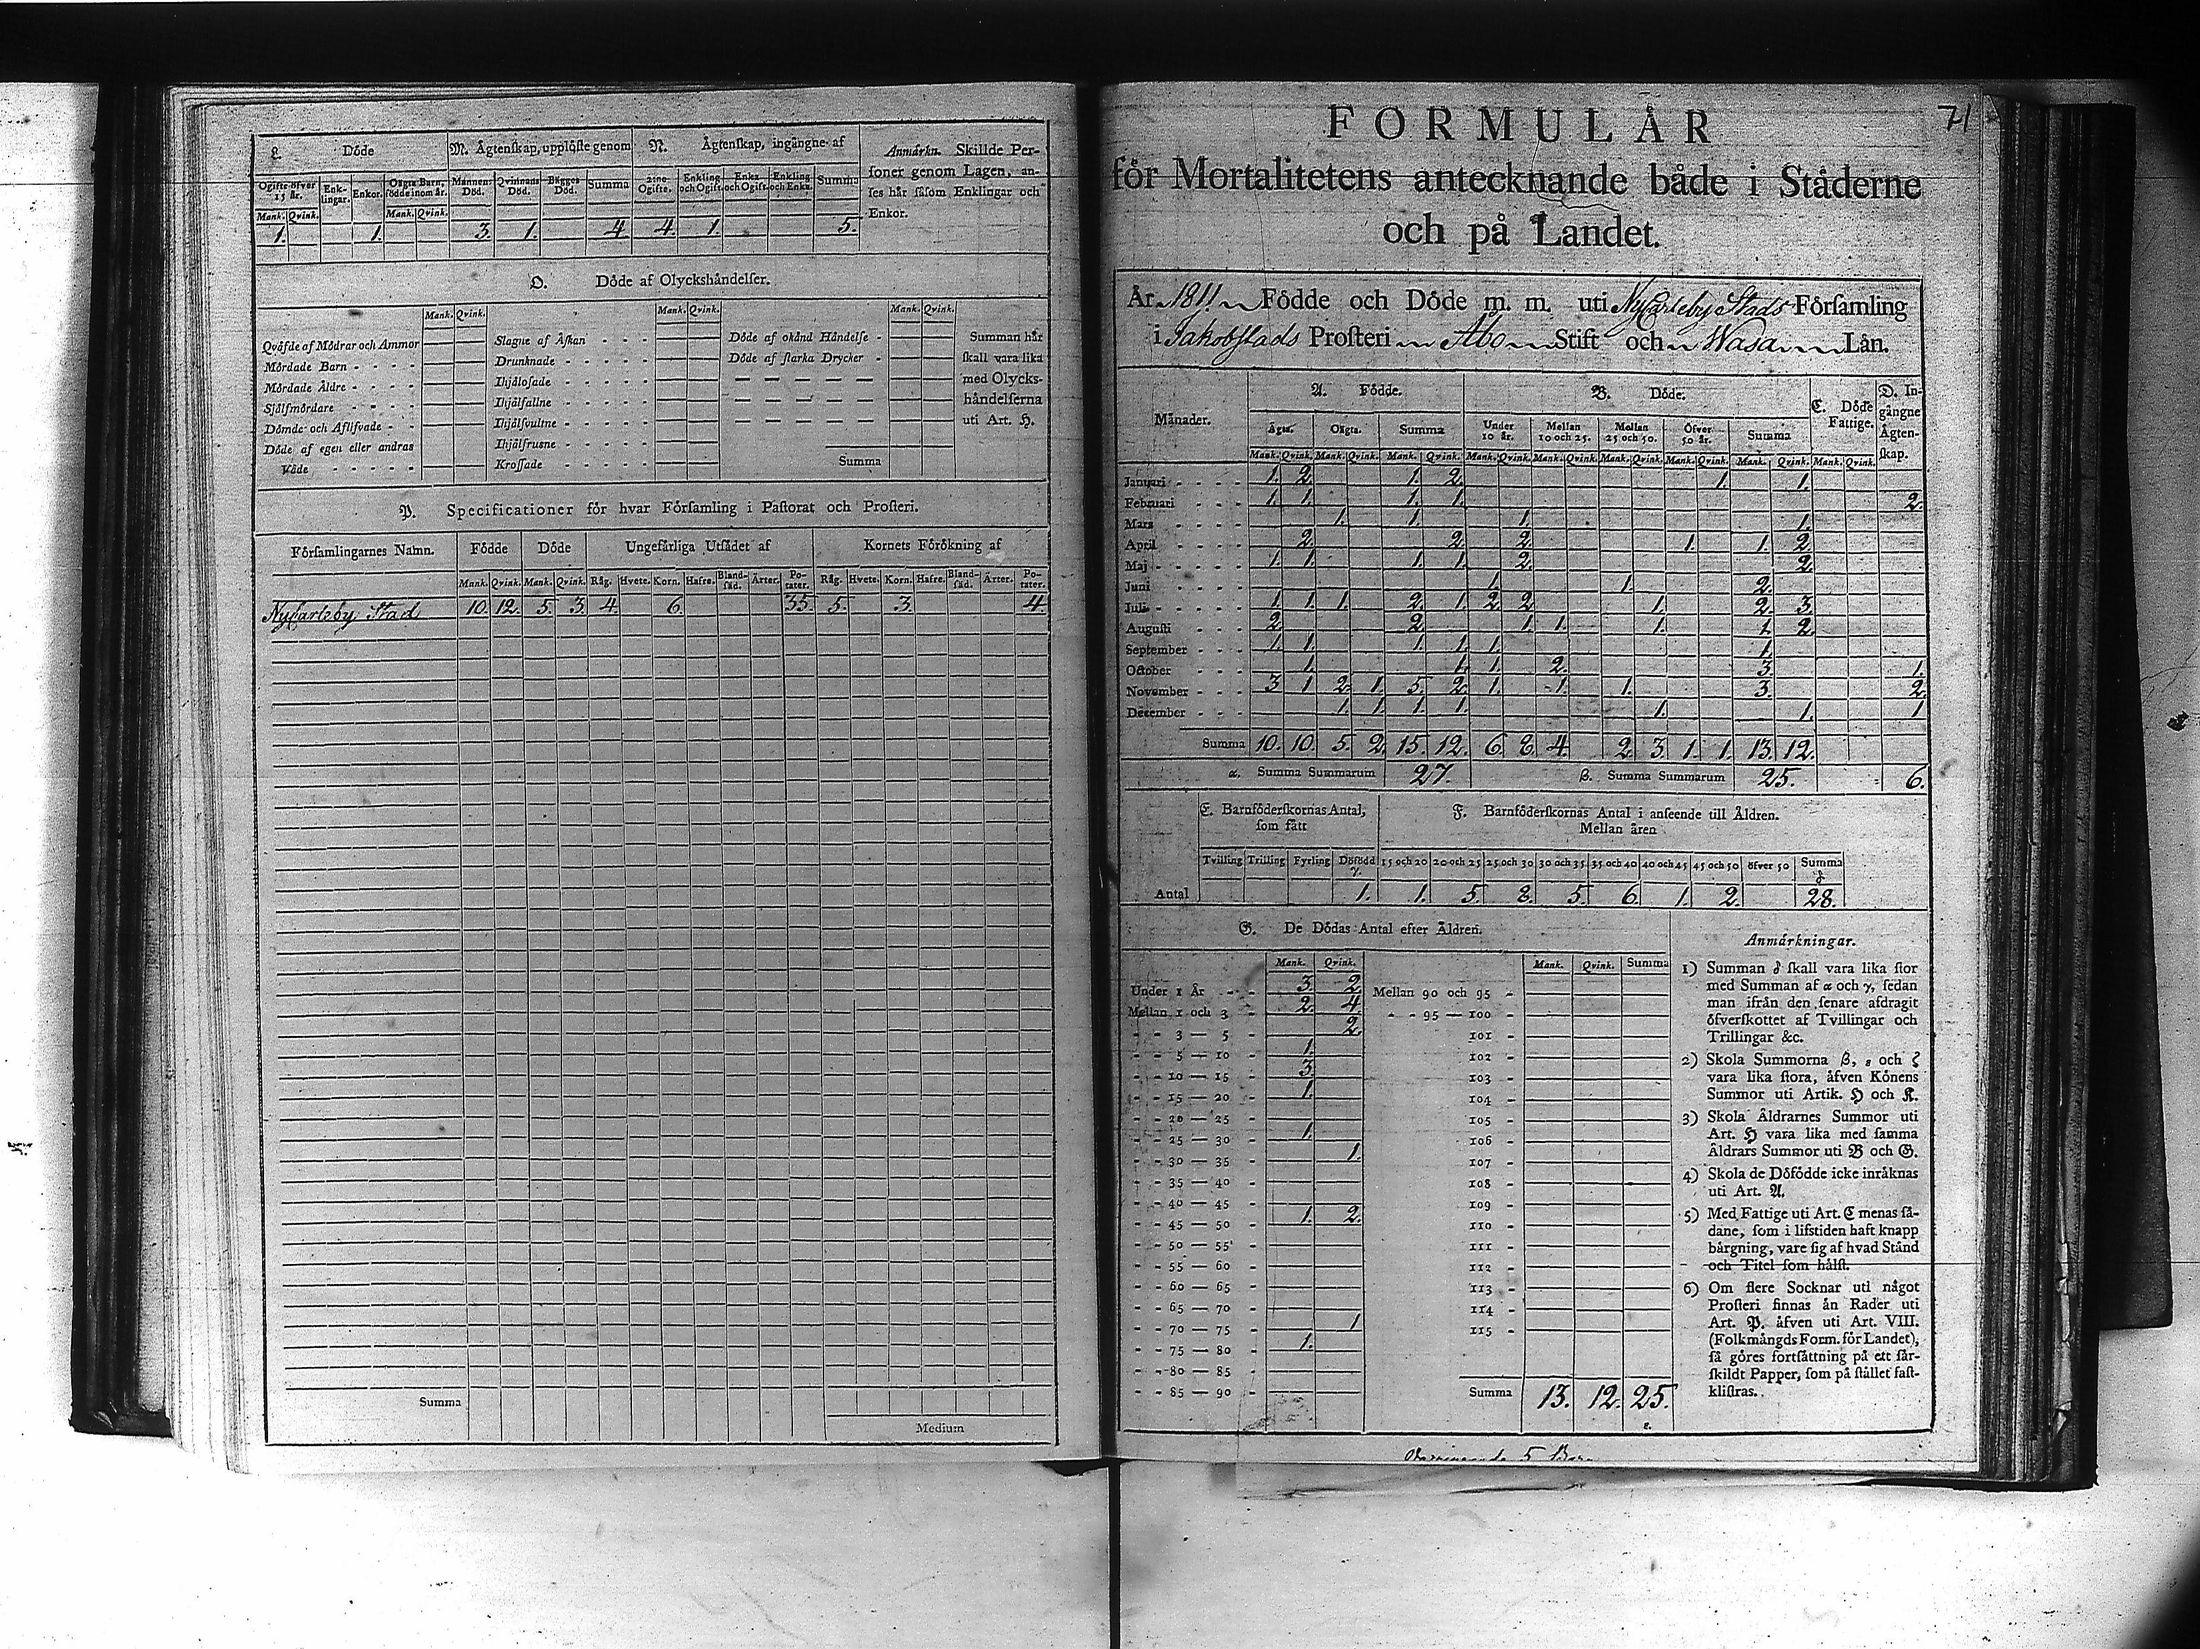 L. Döde
M. Ägtenskap, upplöste genom
N. Ägtenskap, ingångne af
Ogifte öfver 15 år.
Enklingar.
Enkor.
Oägta Barn, födde inom år.
Mannens Död.
Qvinnans Död.
Bägges Död.
Summa
Ogifte.
Enkling och Ogift.
Enka och Ogift.
Enkling och Enka.
Summa
Mank. Qvink. Mank. Qvink.
1. 1. 3. 1. 4. 4. 1. 5.
Anmärkn. Skillde Per-
soner genom Lagen, an-
ses här såsom Enklingar och
Enkor.
O. Döde af Olyckshändelser.
Mank. Qvink. Mank. Qvink. Mank. Qvink.
Qväfde af Mödrar och Ammor
Mördade Barn
Mördade Äldre
Självmördare
Dömde och Aflifvade
Döde af egen eller andras
Våde
Slagne af Åskan
Drunknade
Ihjälosade
Ihjälfallne
Ihjälsvultne
Ihjälfrusne
Krossade
Döde af okänd Händelse
Döde af starka Drycker
Summa
Summan här
skall vara lika
med Olycks-
händelserna
uti Art. H.
P. Specificationer för hvar Församling i Pastorat och Prosteri.
Församlingarnes Namn. Födde Döde Ungefärliga Utsädet af Kornets Förökning af
Mank. Qvink. Mank. Qvink. Råg. Hvete. Korn. Hafre. Bland-säd. Ärter. Po-tater. Råg. Hvete. Korn. Hafre. Bland-säd. Ärter. Po-tater.
NyCarleby Stad 10. 12. 5. 3. 4. 6. 35. 5. 3. 4.
Summa
Medium
71
FORMULÄR
för Mortalitetens antecknande både i Städerne
och på Landet.
År 1811 Födde och Döde m. m. uti NyCarleby Stads Församling
i Jakobstads Prosteri Åbo Stift och Wasa Län.
Månader.
A. Födde.
B. Döde.
C. Döde Fattige.
D. In-gångne Ägten-skap.
Ägta. Oägta. Summa Under 10 år. Mellan 10 och 25. Mellan 25 och 50. Öfver 50 år. Summa
Mank. Qvink. Mank. Qvink. Mank. Qvink. Mank. Qvink. Mank. Qvink. Mank. Qvink. Mank. Qvink. Mank. Qvink. Mank. Qvink.
Januari 1. 2. 1. 2. 1. 1.
Februari 1. 1. 1. 1. 2.
Mars 1. 1. 1. 1.
April 2. 2. 2. 1. 1. 2.
Maj 1. 1. 1. 1. 2. 2.
Juni 1. 1. 2.
Juli 1. 1. 1. 2. 1. 2. 2. 1. 2. 3.
Augusti 2. 2. 1. 1. 1. 1. 2.
September 1. 1. 1. 1. 1. 1.
October 1. 1. 1. 2. 3. 1.
November 3. 1 2. 1. 5. 2. 1. 1. 1. 3. 2.
December 1. 1. 1. 1. 1. 1. 1
Summa 10. 10. 5. 2. 15. 12. 6. 8. 4. 2. 3. 1. 1. 13. 12.
α. Summa Summarum 27. β. Summa Summarum 25. 6.
E. Barnföderskornas Antal,
som fått
F. Barnföderskornas Antal i anseende till Åldren.
Mellan åren
Tvilling Trilling Fyrling Döfödd γ. 15 och 20 20 och 25 25 och 30 30 och 35 35 och 40 40 och 45 45 och 50 öfver 50 Summa δ
Antal 1. 1. 5. 8. 5. 6. 1. 2. 28.
G. De Dödas Antal efter Åldren.
Mank. Qvink. Mank. Qvink. Summa
Under 1 År 3. 2. Mellan 90 och 95
Mellan 1 och 3 2. 4. 95 — 100
3 — 5 2. 101
5 — 10 1. 102
10 — 15 3. 103
15 — 20 1. 104
20 — 25 105
25 — 30 1. 106
30 — 35 1. 107
35 — 40 108
40 — 45 109
45 — 50 1. 2. 110
50 — 55 111
55 — 60 112
60 — 65 113
65 — 70 114
70 — 75 1 115
75 — 80 1.
80 — 85
85 — 90 Summa 13. 12. 25.
ε.
Anmärkningar.
1) Summan δ skall vara lika stor
med Summan af α och γ, sedan
man ifrån den senare afdragit
öfverskottet af Tvillingar och
Trillingar &c.
2) Skola Summorna β, ε och ζ
vara lika stora, äfven Könens
Summor uti Artik. H och K.
3) Skola Åldrarnes Summor uti
Art. H vara lika med samma
Åldrars Summor uti B och G.
4) Skola de Döfödde icke inräknas
uti Art. A.
5) Med Fattige uti Art. C menas så-
dane, som i lifstiden haft knapp
bärgning, vare sig af hvad Stånd
och Titel som hälst.
6) Om flere Socknar uti något
Prosteri finnas än Rader uti
Art. P. äfven uti Art. VIII.
(Folkmängds Form. för Landet),
så göres fortsättning på ett sär-
skildt Papper, som på stället fast-
klistras.
5 Barn